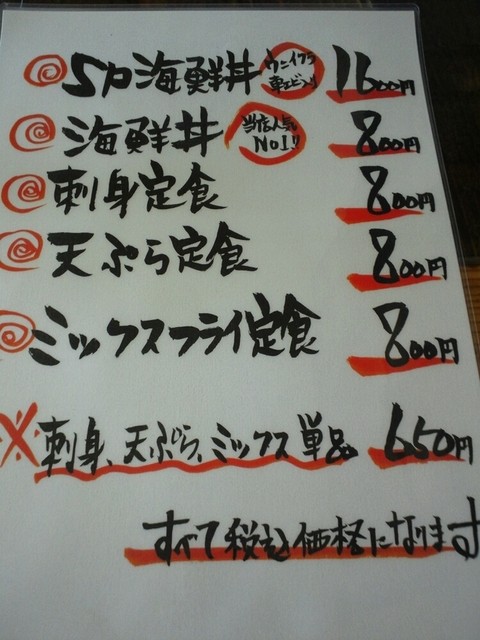 SP海鮮丼 ウニイクラ 車エビ入り 1600円
海鮮丼 当店人気 No1!! 800円
刺身定食 800円
天ぷら定食 800円
ミックスフライ定食 800円
※刺身、天ぷら、ミックス単品 650円
すべて税込価格になります